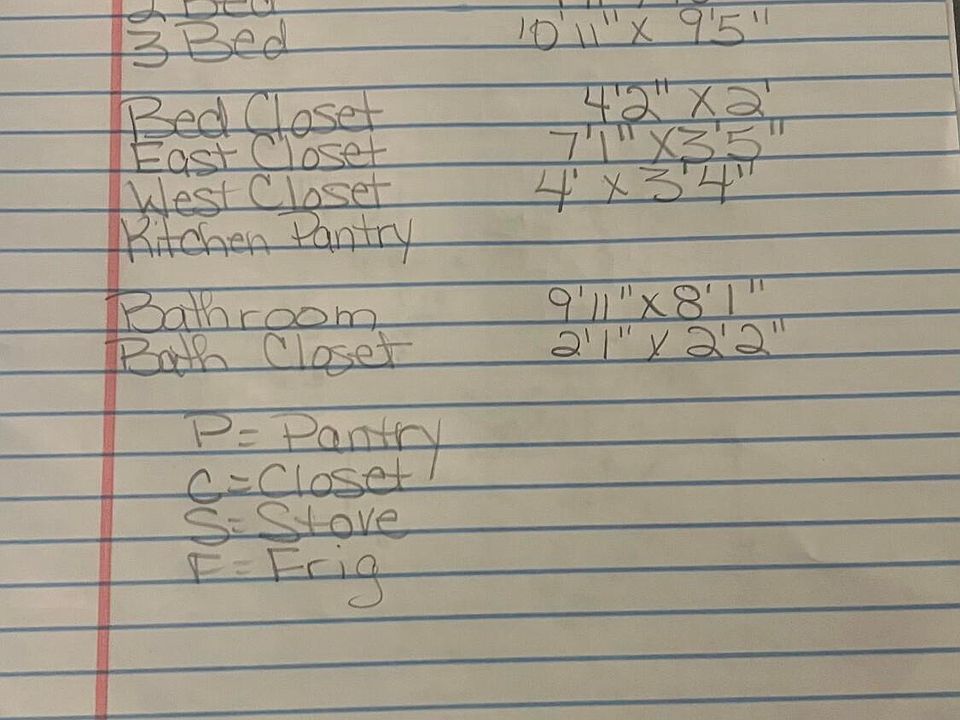 2 Bed
3 Bed 10'11" x 9'5"
Bed Closet 4'2" x 2'
East Closet 7'1" x 3'5"
West Closet 4' x 3'4"
Kitchen Pantry
Bathroom 9'11" x 8'1"
Bath Closet 2'1" x 2'2"
P = Pantry
C = Closet
S = Stove
F = Frig